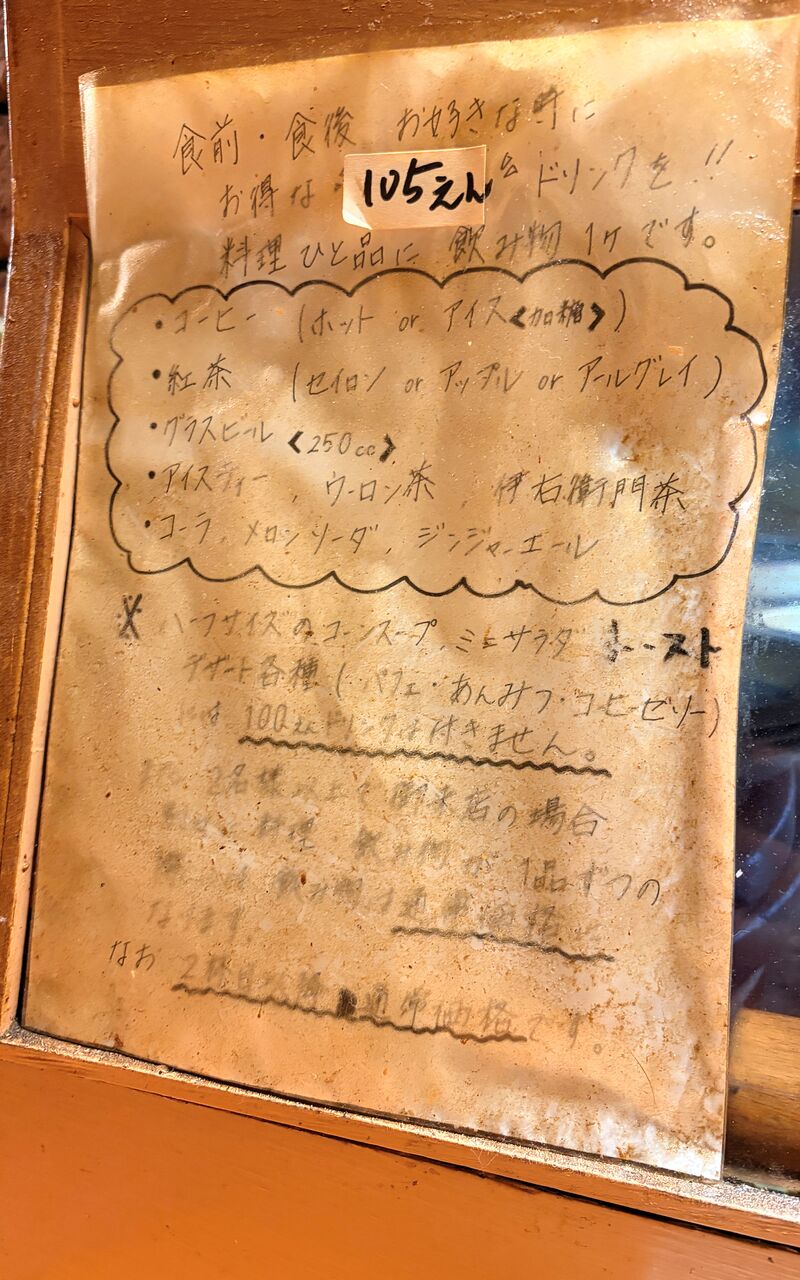 食前・食後 お好きな時に
お得な 105えん ドリンクを!!
料理ひと品に 飲み物 1ヶです。
・コーヒー (ホット or アイス<加糖>)
・紅茶 (セイロン or アップル or アールグレイ)
・グラスビール <250cc>
・アイスティー 、 ウーロン茶 、 伊右衛門茶
・コーラ、メロンソーダ、ジンジャーエール
※ ハーフサイズのコーンスープ、ミニサラダ トースト
デザート各種 (パフェ・あんみつ・コーヒーゼリー)
には 100えんドリンクは付きません。
2名様以上で御来店の場合
料理 飲み物が 1品ずつの
飲み物は通常価格と
なります。
なお 2杯目以降は通常価格です。